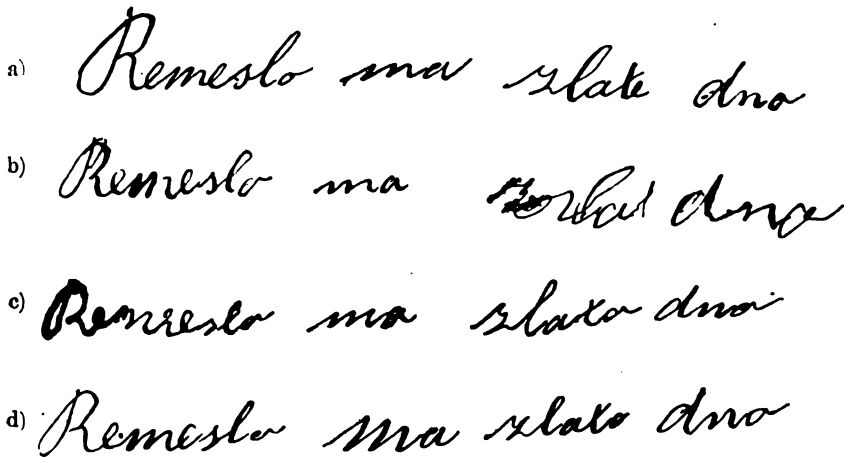 a) Remeslo ma zlate dno
b) Remeslo ma dno
c) Remeslo ma zlato dno
d) Remeslo ma zlato dno